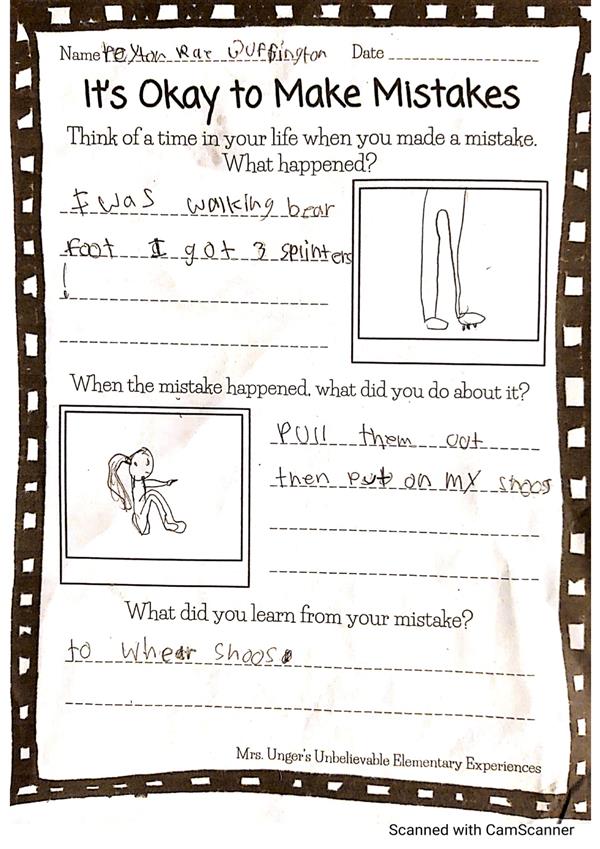 Name Peyton Rae Buffington Date
It's Okay to Make Mistakes
Think of a time in your life when you made a mistake.
What happened?
I was walking bear
foot I got 3 splinters
!
When the mistake happened, what did you do about it?
PUll them out
then put on my shoos
What did you learn from your mistake?
to whear shoos.
Mrs. Unger's Unbelievable Elementary Experiences
Scanned with CamScanner